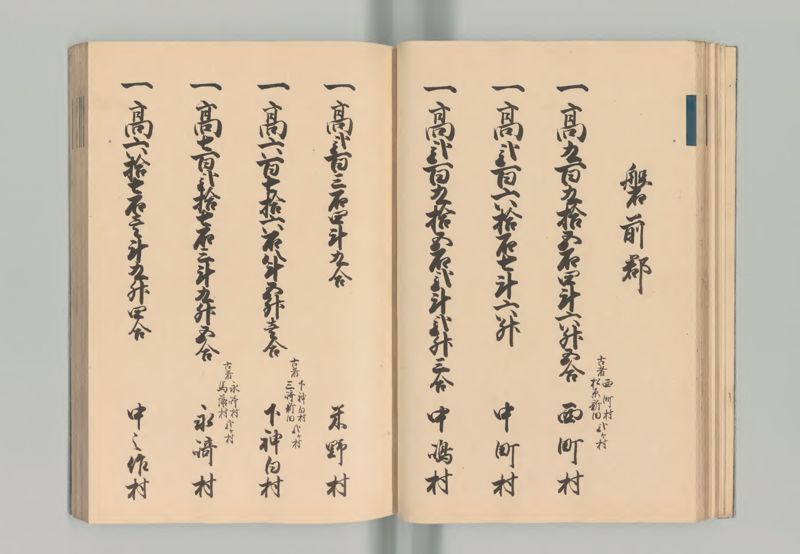 磐前郡
一高九百九拾五石四斗六升五合
古者 西町村
松本新田 弐ケ村
西町村
一高弐百六拾石七斗六升
中町村
一高弐百九拾五石弐斗弐升三合
中嶋村
一高弐百三石四斗九合
米野村
一高六百七拾六石八斗五升壱合
古者 下神白村
三沢新田 弐ケ村
下神白村
一高七百弐拾七石三斗九升五合
古者 永井村
馬落村 弐ケ村
永崎村
一高六拾七石壱斗九升四合
中之作村